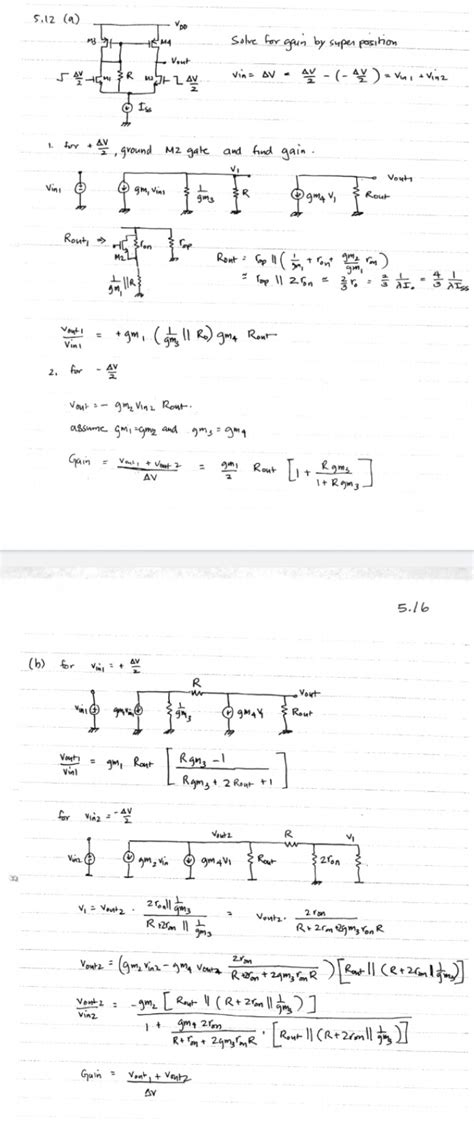 5.12 (a)
VDD
M3
M4
Vout
ΔV/2
M1
R
M2
ΔV/2
ISS
Solve for gain by superposition
Vin = ΔV = ΔV/2 - (- ΔV/2) = Vin1 + Vin2
1. for + ΔV/2, ground M2 gate and find gain.
Vin1
gm1 Vin1
1/gm3
V1
R
gm4 V1
Vout1
Rout
Rout1 ⇒
M2
ron
rop
1/gm1 || R
Rout = rop || (1/gm1 + ron + gm2/gm1 ron)
= rop || 2ron = 2/3 ro = 2/3 1/λI0 = 4/3 1/λISS
Vout1/Vin1 = +gm1 (1/gm3 || R0) gm4 Rout
2. for - ΔV/2
Vout = - gm2 Vin2 Rout.
assume gm1 = gm2 and gm3 = gm4
Gain = Vout1 + Vout2 / ΔV = gm1/2 Rout [1 + Rgm3 / 1 + Rgm3]
5.16
(b) for Vin1 = + ΔV/2
R
Vout
Vin1
gm1Vin
1/gm3
gm4V1
Rout
Vout1/Vin1 = gm1 Rout [Rgm3 - 1 / Rgm3 + 2Rout + 1]
for Vin2 = -ΔV/2
Vout2
R
V1
Vin2
gm2 Vin
gm4V1
Rout
2ron
V1 = Vout2 · 2ron || 1/gm3 / R+2ron || 1/gm3 = Vout2 · 2ron / R+2ron+2gm3ronR
Vout2 = (gm2Vin2 - gm4 Vout2 2ron / R+2ron+2gm3ronR) [Rout || (R+2ron || 1/gm3)]
Vout2/Vin2 = -gm2 [Rout || (R+2ron || 1/gm3)] / 1 + gm4 2ron / R+ron+2gm3ronR · [Rout || (R+2ron || 1/gm3)]
Gain = Vout1 + Vout2 / ΔV